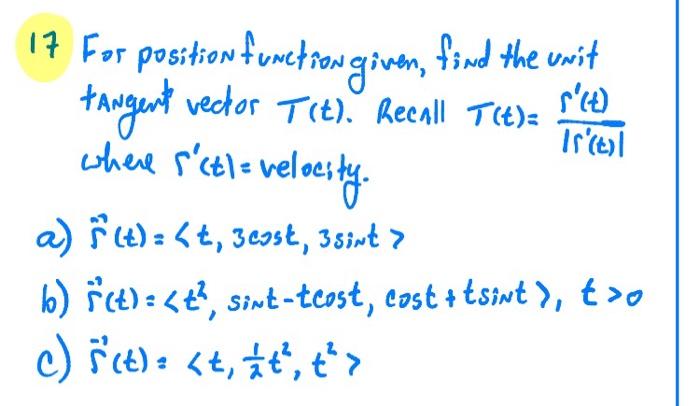 17 For position function given, find the unit
tangent vector T(t). Recall T(t) = r'(t) / |r'(t)|
where r'(t) = velocity.
a) r⃗(t) = <t, 3cost, 3sint>
b) r⃗(t) = <t², sint-tcost, cost+tsint>, t>0
c) r⃗(t) = <t, ½t², t²>